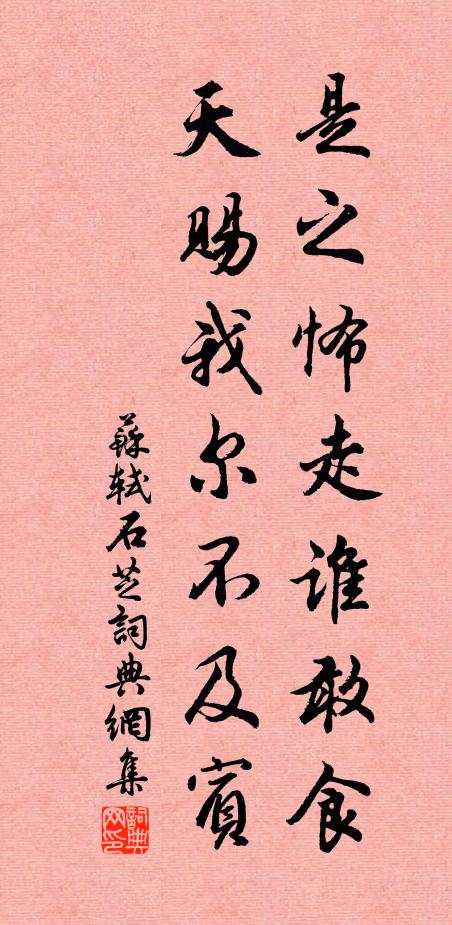 是之怖走谁敢食
天赐我尔不及賓
蘇軾石芝詞典網集
詞典网印